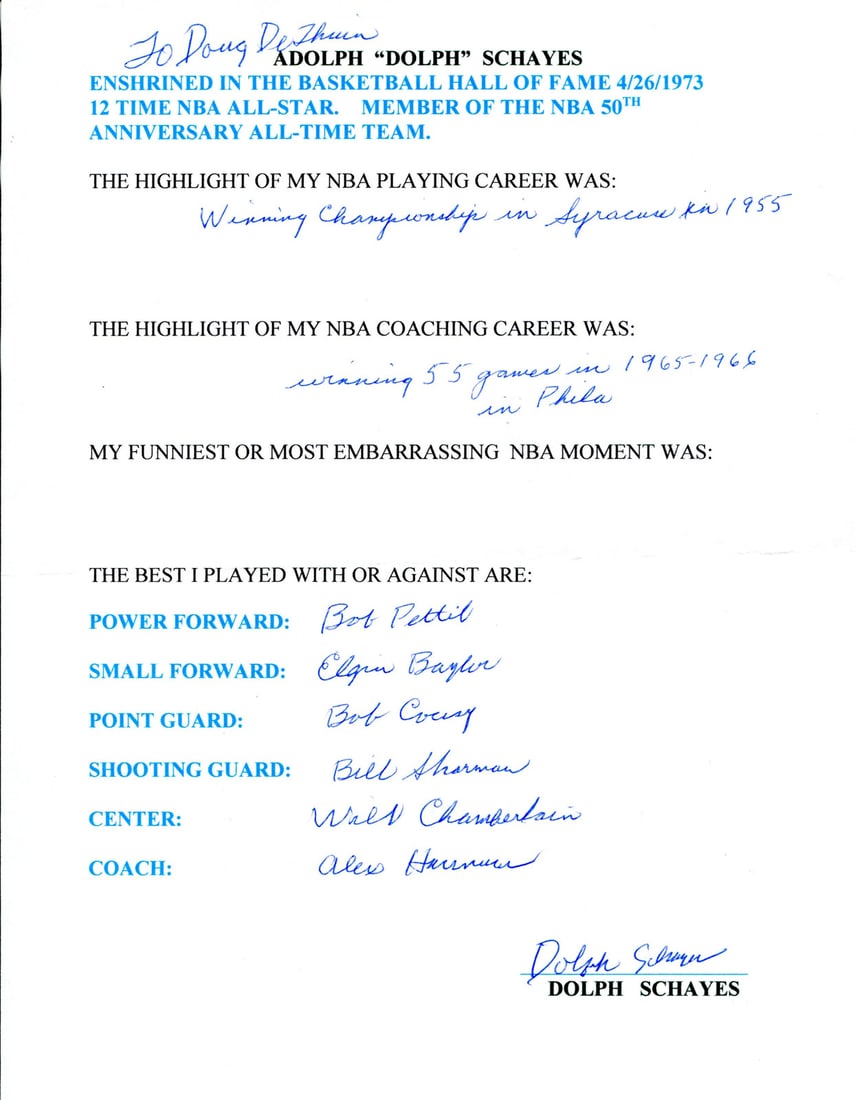 To Doug
ADOLPH “DOLPH” SCHAYES
ENSHRINED IN THE BASKETBALL HALL OF FAME 4/26/1973
12 TIME NBA ALL-STAR. MEMBER OF THE NBA 50TH
ANNIVERSARY ALL-TIME TEAM.
THE HIGHLIGHT OF MY NBA PLAYING CAREER WAS:
Winning Championship in Syracuse in 1955
THE HIGHLIGHT OF MY NBA COACHING CAREER WAS:
winning 55 games in 1965-1966
in Phila
MY FUNNIEST OR MOST EMBARRASSING NBA MOMENT WAS:
THE BEST I PLAYED WITH OR AGAINST ARE:
POWER FORWARD: Bob Pettit
SMALL FORWARD: Elgin Baylor
POINT GUARD: Bob Cousy
SHOOTING GUARD: Bill Sharman
CENTER: Wilt Chamberlain
COACH: Alex Hannum
Dolph Schayes
DOLPH SCHAYES